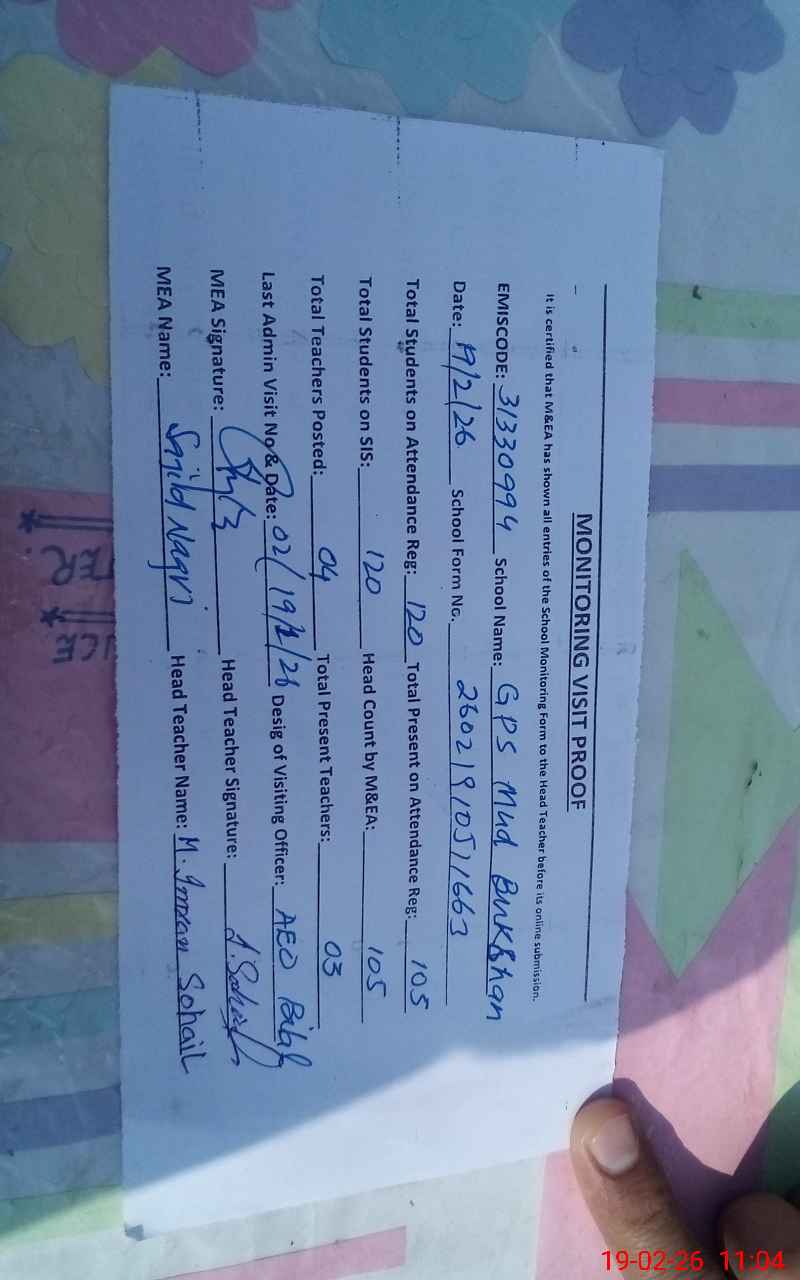 MONITORING VISIT PROOF
It is certified that M&EA has shown all entries of the School Monitoring Form to the Head Teacher before its online submission.
EMISCODE: 31330994 School Name: GPS Mud Bukkhan
Date: 19/2/26 School Form No. 26021910511663
Total Students on Attendance Reg: 120 Total Present on Attendance Reg: 105
Total Students on SIS: 120 Head Count by M&EA: 105
Total Teachers Posted: 04 Total Present Teachers: 03
Last Admin Visit No & Date: 02/19/2/26 Desig of Visiting Officer: AEO Bilal
MEA Signature: Head Teacher Signature:
MEA Name: Sajid Naqvi Head Teacher Name: M. Imran Sohail
19-02-26 11:04